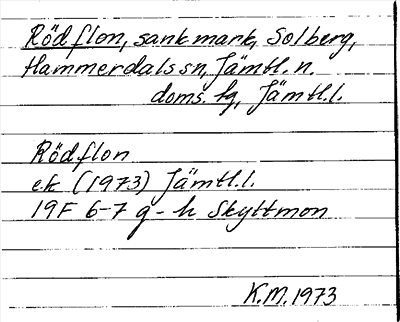 Rödflon, sankmark, Solberg,
Hammerdals sn, Jämtl. n.
doms. tg, Jämtl.l.
Rödflon
ek (1973) Jämtl.l.
19F 6-7 g-h Skyttmon
K.M. 1973